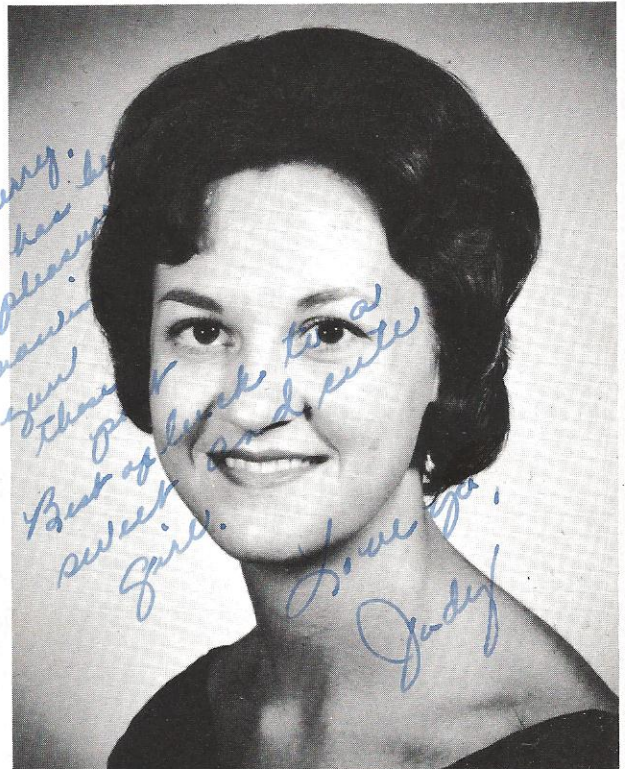 erry.
has be
pleasure
nowin
you
these past
Best of luck to a
sweet and cute
girl.
Love ya,
Judy